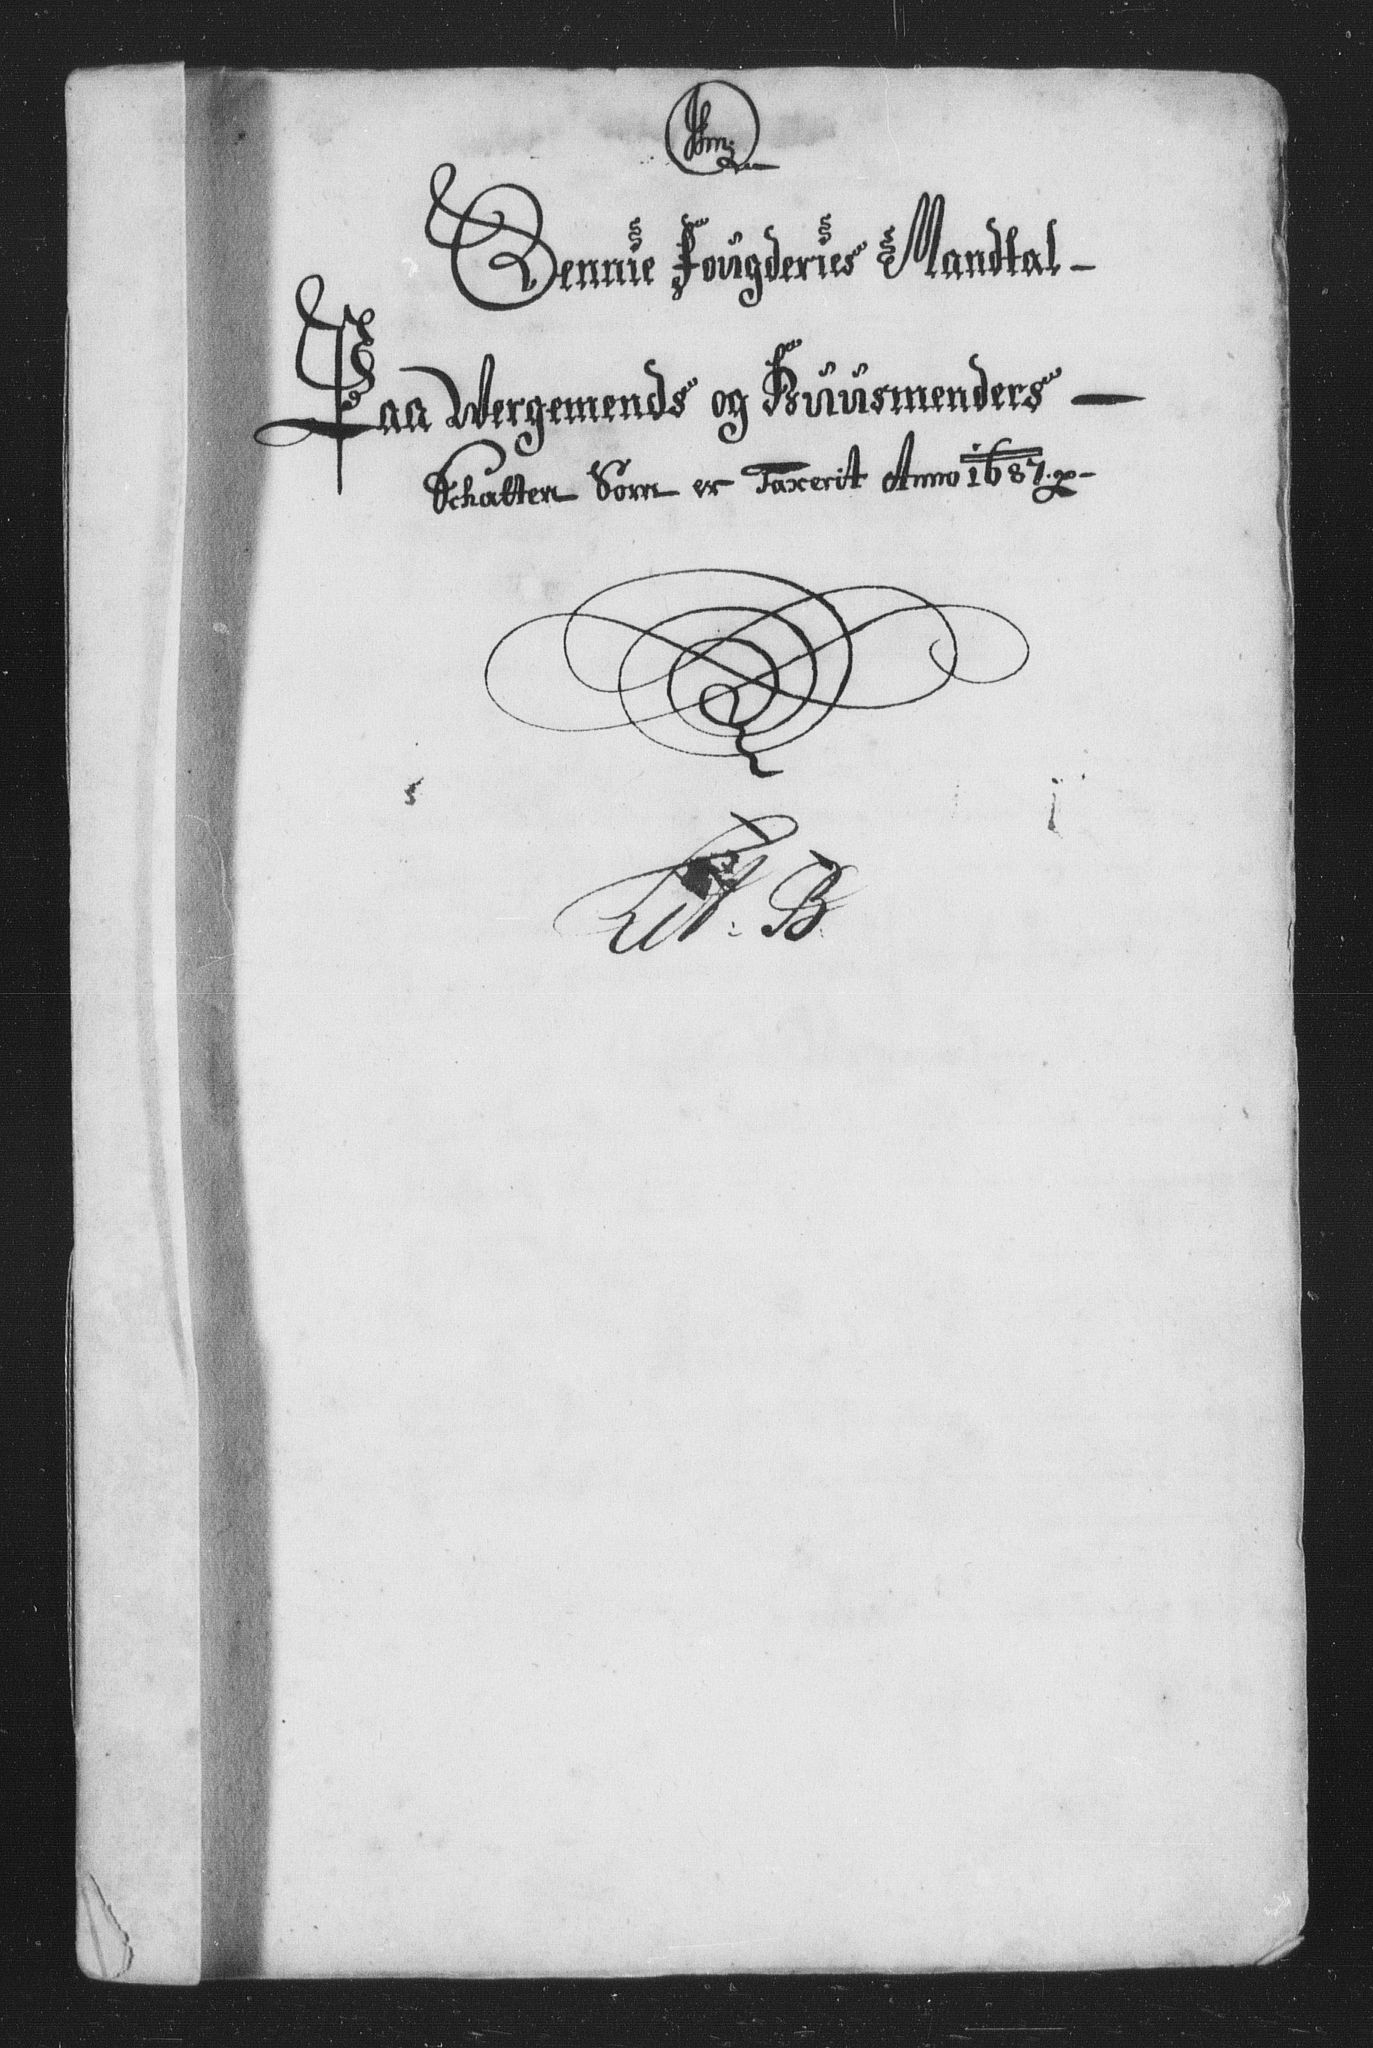 Bennie Fougderies Mandtal –
Paa Wergemends og Huusmenders –
Schatten Som er Taxerit Anno 1687.
Lit. B.